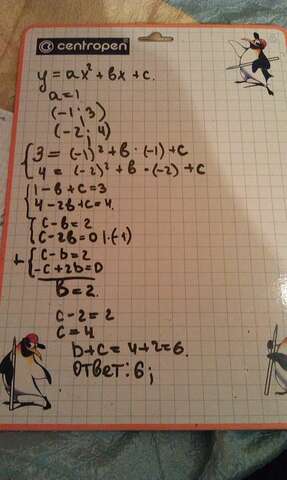 centropen
y = ax² + bx + c.
a = 1
(-1; 3)
(-2; 4)
{ 3 = (-1)² + b · (-1) + c
4 = (-2)² + b · (-2) + c
{ 1 - b + c = 3
4 - 2b + c = 4.
{ c - b = 2
c - 2b = 0 | · (-1)
+ { c - b = 2
-c + 2b = 0
b = 2.
c - 2 = 2
c = 4
b + c = 4 + 2 = 6.
Ответ: 6;